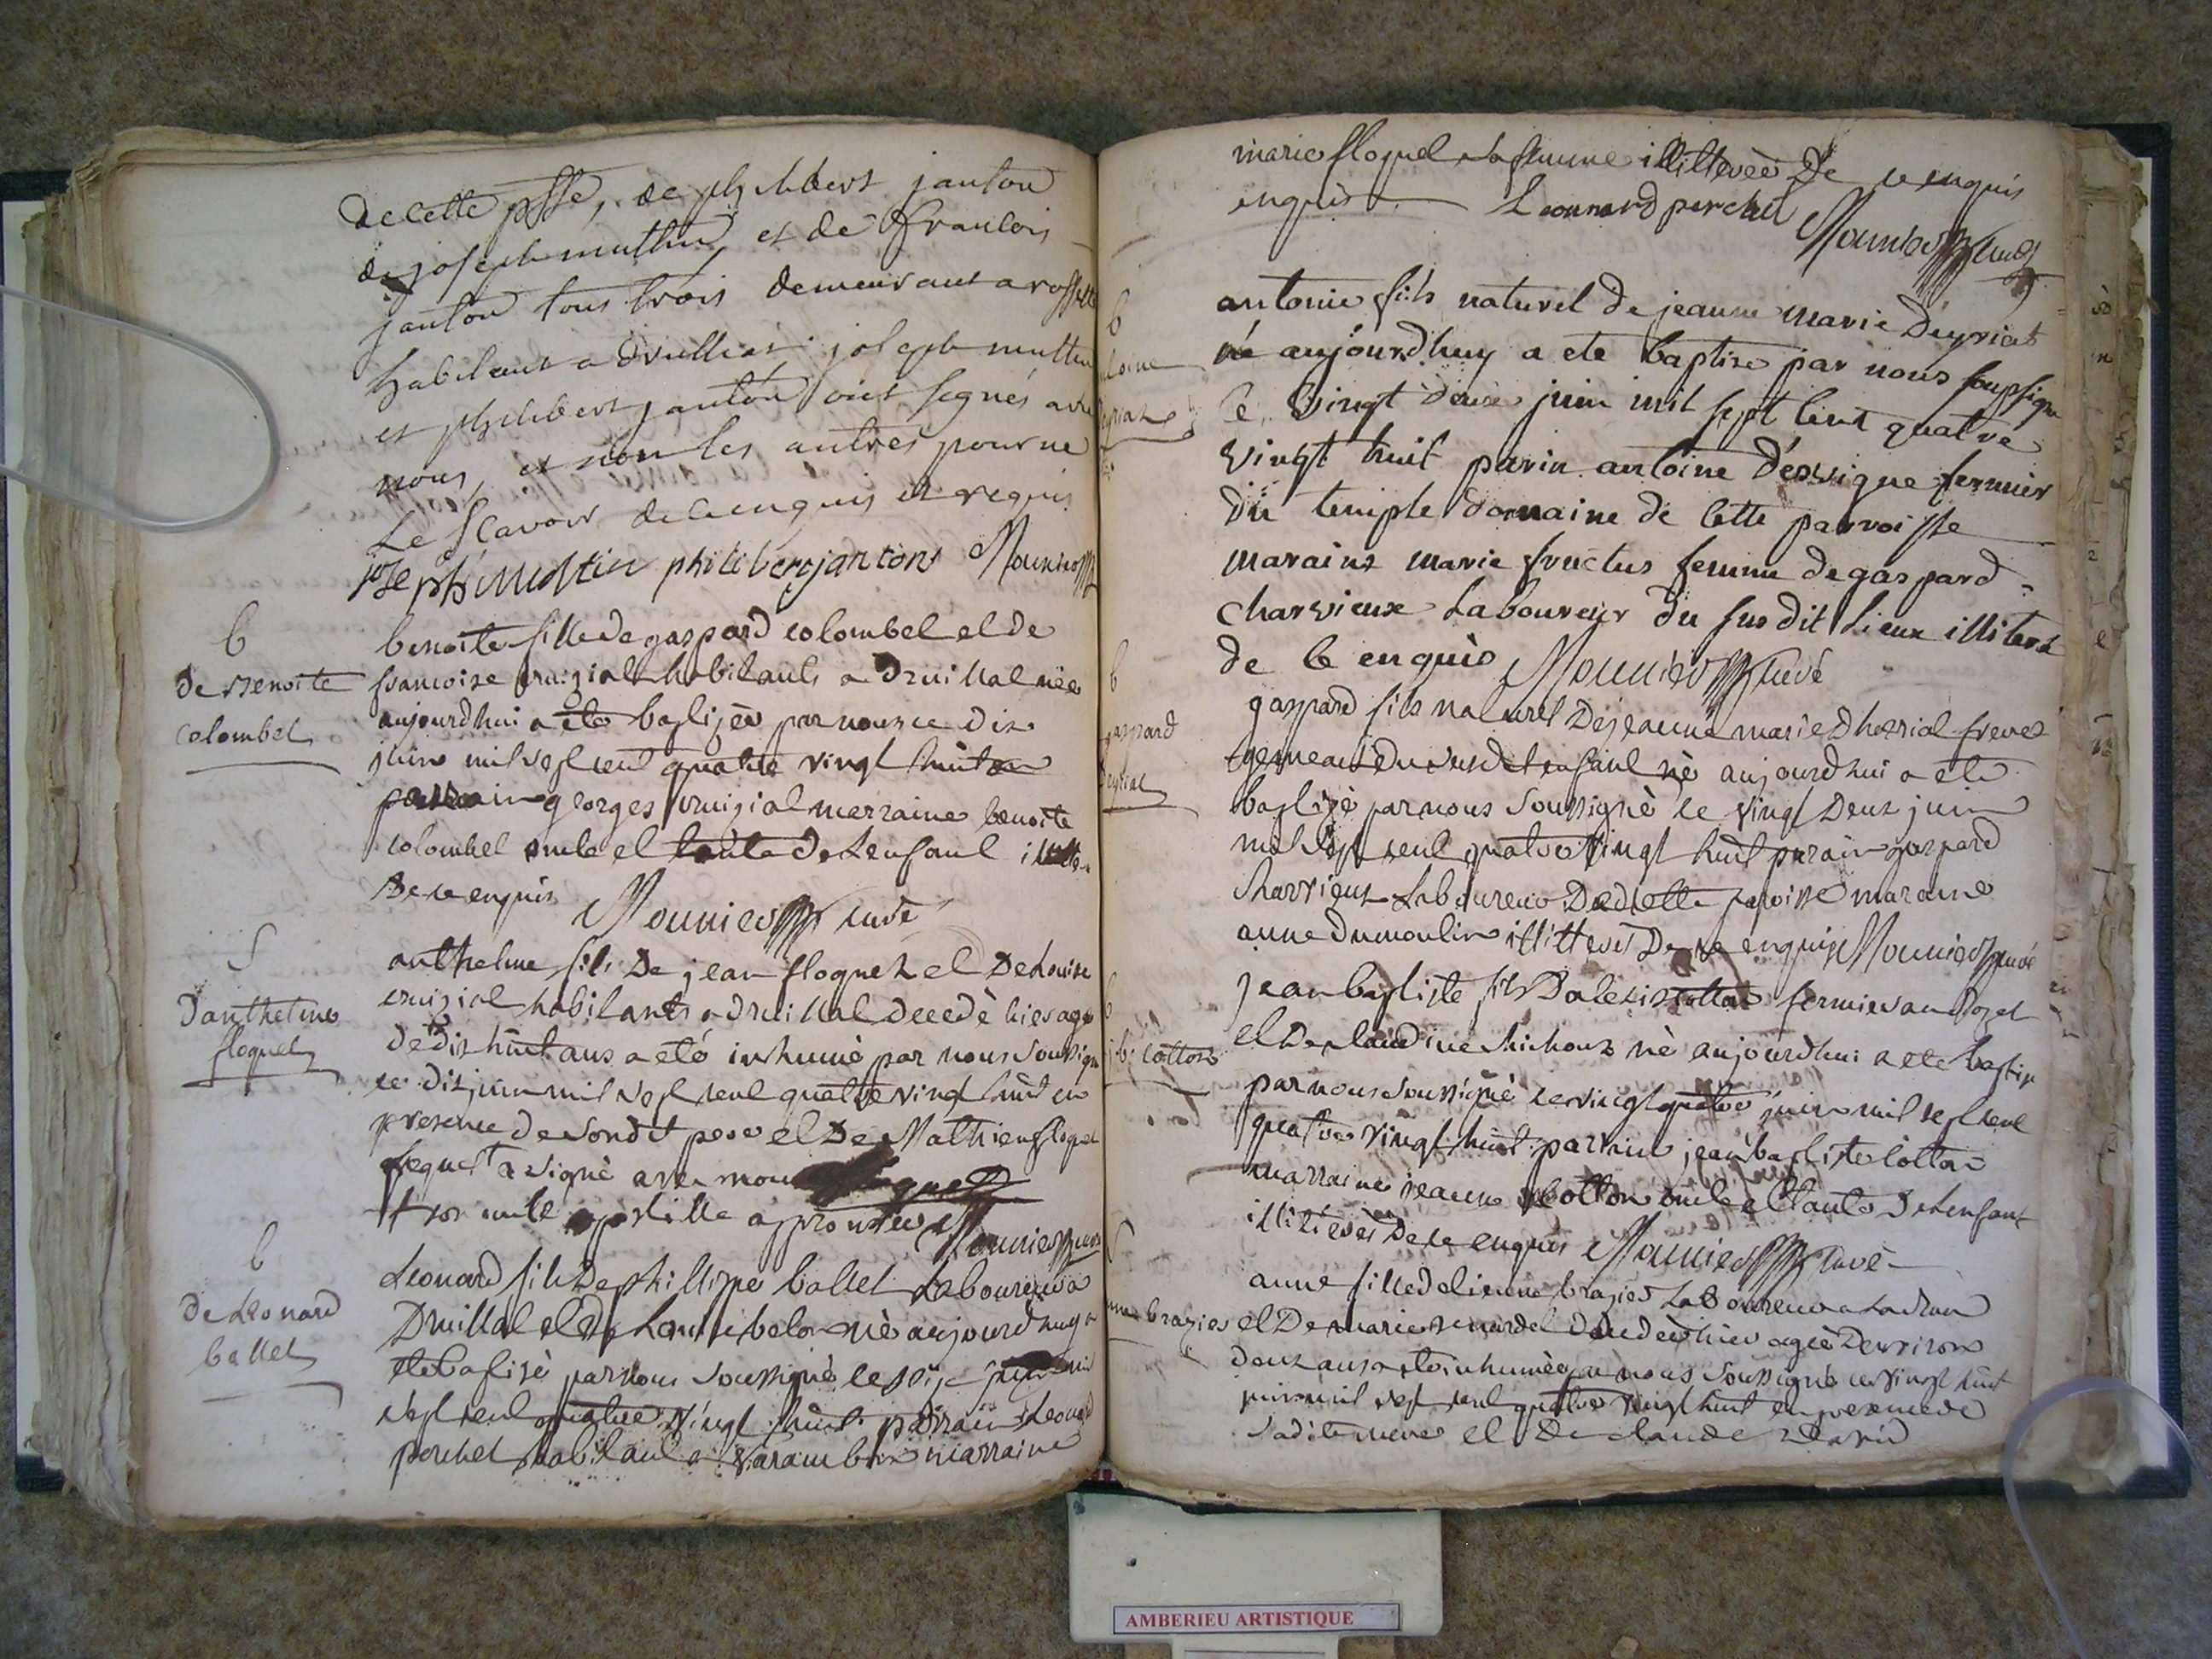 de cette psse, de philibert janton
de joseph muttin, et de francois
janton tous trois demeurant a rossette
habitant a druillat joseph muttin
et philibert janton ont signés avec
nous, et non les autres pour ne
le scavoir de ce enquis et requis
joseph muttin philibert janton Mounier
b
de benoite
colombet
benoite fille de gaspard colombet et de
francoise habitants a druillat née
aujourdhui a ete baptisée par nous ce dix
juin mil sept cent quatre vingt huit
parrain georges marraine benoite
colombet oncle et tante de lenfant
de ce enquis Mounier curé
S
d'anthelme
floquet
anthelme fils de jean floquet et de Louise
habitants a druillat decedé hier agé
de dix huit ans a eté inhumé par nous soussigné
ce dix juin mil sept cent quatre vingt huit en
presence de sondit pere et de Mathieu floquet
floquet a signé avec nous
apostille approuvée Mounier curé
b
de Leonard
ballet
Leonard fils de phillippe ballet Laboureur a
Druillat et de né aujourdhuy a
ete baptisé par nous soussigné le juin mil
sept cent quatre vingt huit parrain Leonard
perchet habitant a Varambon marraine
marie floquet sa femme illitterée De ce enquis
enquis Leonnard perchet Mounier curé
b
antoine fils naturel de jeanne marie Deyriat
né aujourdhuy a ete baptise par nous soussigne
le vingt deux juin mil sept cent quatre
vingt huit parin antoine fermier
du temple domaine de cette parroisse
maraine marie fructus femme de gaspard
charvieux Laboureur du susdit Lieux
de ce enquis Mounier curé
b
gaspard
deyriat
gaspard fils naturel De jeanne marie frere
gemeau du susdit enfant né aujourdhui a ete
baptizé par nous Soussigné le vingt Deux juin
mil sept cent quatre vingt huit parain gaspard
charvieux Laboureur De cette paroisse maraine
anne dumoulin illitteres De ce enquis Mounier curé
b
j b cotton
jean baptiste fils Dalexis cotton fermier au
et De claudine né aujourdhui a ete baptisé
par nous soussigné le vingt quatre juin mil sept cent
quatre vingt huit parrain jean baptiste cotton
marraine jeanne cotton oncle et tante De Lenfant
illitéres De ce enquis Mounier curé
S
brazier
anne fille detienne brazier Laboureur a
et De marie decedée hier agée Denviron
deux ans a ete inhumée par nous Soussigné ce vingt huit
juin mil sept cent quatre vingt huit en presence de
Sadite mere et De claude
AMBERIEU ARTISTIQUE